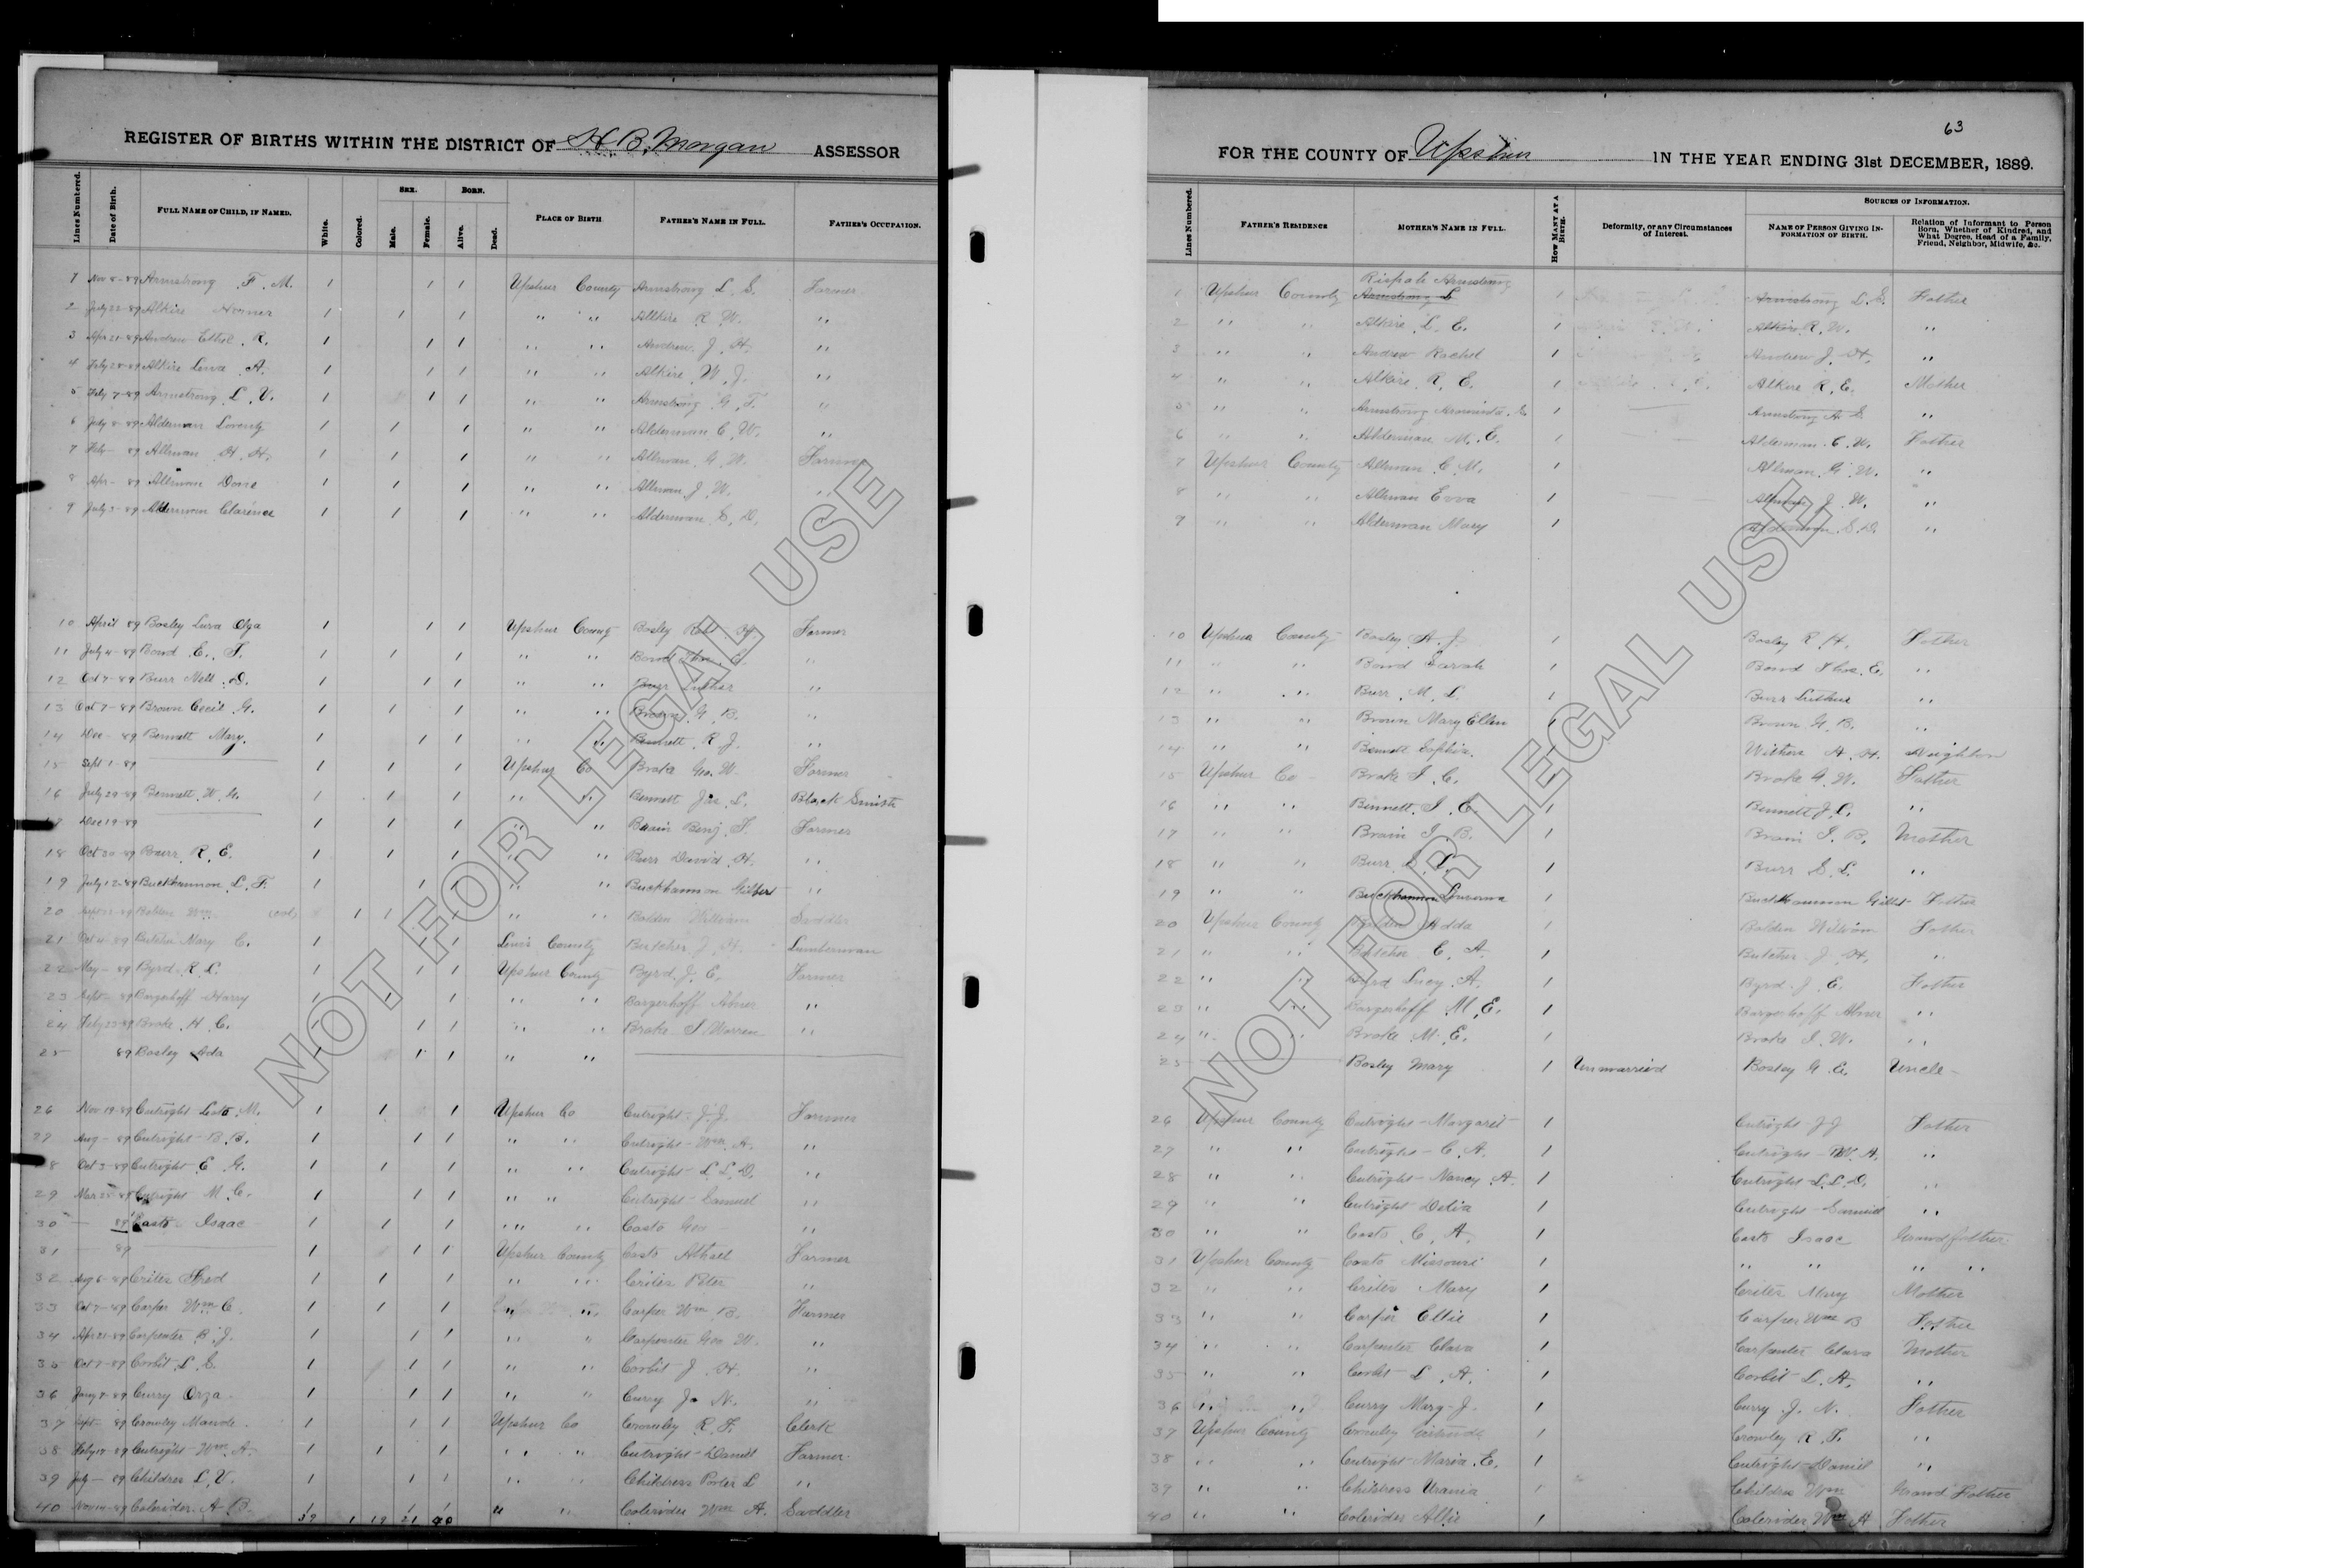 REGISTER OF BIRTHS WITHIN THE DISTRICT OF H. B. Morgan ASSESSOR
Lines Numbered. Date of Birth. FULL NAME OF CHILD, IF NAMED. White. Colored. SEX. Male. Female. BORN. Alive. Dead. PLACE OF BIRTH FATHER'S NAME IN FULL. FATHER'S OCCUPATION.
1 Nov 8-89 Armstrong F. M. 1 1 1 Upshur County Armstrong L. S. Farmer
2 July 22-89 Alkire Homer 1 1 1 " " Alkire R. W. "
3 Apr 21-89 Andrew Ethel. R. 1 1 1 " " Andrew J. H. "
4 Alkire A. 1 1 1 " " Alkire W. J. "
5 Feby 7-89 Armstrong L. V. 1 1 1 " " Armstrong G. F. "
6 July 8-89 Alderman Lorenty 1 1 1 " " Alderman C. W. "
7 Feb - 89 Allman H. H. 1 1 1 " " Allman G. W. Farmer
8 Apr - 89 Allman 1 1 1 " " Allman J. W. "
9 July 3-89 Alderman Clarence 1 1 1 " " Alderman S. D.
10 April 89 Bosley Lura Olga 1 1 1 Upshur County Bosley Robt H Farmer
11 July 4-89 Bond E. F. 1 1 1 " " Bond Thos. E. "
12 Oct 7-89 Burr Nell D. 1 1 1 " " Burr Luther "
13 Oct 7-89 Brown Cecil G. 1 1 1 " " Brown G. B. "
14 Dec - 89 Bennett Mary. 1 1 1 " " Bennett R J. "
15 Sept 1-89 1 1 1 Upshur Co Brake Geo. W. Farmer
16 July 29-89 Bennett W. G. 1 1 1 " " Bennett Jas. L. Black Smith
17 Dec 19-89 1 1 1 " " Brain Benj. F. Farmer
18 Oct 30-89 Burr R. E. 1 1 1 " " Burr David H. "
19 July 12-89 Buckhannon L. F. 1 1 1 " " Buckhannon Gilbert "
20 Bolden Wm (col) 1 1 1 " " Bolden William Saddler
21 Butcher Mary C. 1 1 1 Lewis County Butcher J. H. Lumberman
22 May - 89 Byrd R L. 1 1 1 Upshur County Byrd J. E. Farmer
23 Sept - 89 Bargerhoff Harry 1 1 1 " " Bargerhoff Abner "
24 Brake H. C. 1 1 1 " " Brake I Warren "
25 89 Bosley Ada 1 1 1 " "
26 Nov 19-89 Cutright M. 1 1 1 Upshur Co Cutright J. J. Farmer
27 Aug - 89 Cutright B. B. 1 1 1 " " Cutright Wm. A. "
28 Oct 3-89 Cutright E G. 1 1 1 " " Cutright L. L. D. "
29 Cutright M. C. 1 1 1 " " Cutright Samuel "
30 89 Casto Isaac 1 1 1 " " Casto Geo "
31 89 1 1 1 Upshur County Casto Farmer
32 Aug 6-89 Crites Fred 1 1 1 " " Crites Peter "
33 Oct 7-89 Carper Wm C. 1 1 1 " Carper Wm B. Farmer
34 Apr 21-89 Carpenter B. J. 1 1 1 " " Carpenter Geo W. "
35 Oct 7-89 Corbit L. S. 1 1 1 " " Corbit J. H. "
36 Jany 8-89 Curry Orza 1 1 1 " " Curry Jo N. "
37 Sept - 89 Crowley Maude 1 1 1 Upshur Co Crowley R. F. Clerk
38 Cutright Wm. A. 1 1 1 " " Cutright Daniel Farmer
39 July - 89 Childres L. V. 1 1 1 " " Childress Porter L "
40 Colerider A B. 1 1 1 " " Colerider Wm A. Saddler
39 1 19 21 40
63
FOR THE COUNTY OF Upshur IN THE YEAR ENDING 31st DECEMBER, 1889.
Lines Numbered. FATHER'S RESIDENCE MOTHER'S NAME IN FULL. HOW MANY AT A BIRTH. Deformity, or any Circumstances of Interest. SOURCES OF INFORMATION. NAME OF PERSON GIVING INFORMATION OF BIRTH. Relation of Informant to Person Born, Whether of Kindred, and What Degree, Head of a Family, Friend, Neighbor, Midwife, &c.
Rispah Armstrong
1 Upshur County Armstrong L 1 Armstrong L. S. Father
2 " " Alkire L. E. 1 Alkire R. W. "
3 " " Andrew Rachel 1 Andrew J. H. "
4 " " Alkire R. E. 1 Alkire R. E. Mother
5 " " Armstrong 1 Armstrong A S "
6 " " Alderman M. E. 1 Alderman C. W. Father
7 Upshur County Allman C. M. 1 Allman G. W. "
8 " " Allman Evva 1 Allman J. W. "
9 " " Alderman Mary 1 Alderman S. D. "
10 Upshur County Bosley A. J. 1 Bosley R. H. Father
11 " " Bond Sarah 1 Bond Thos. E. "
12 " " Burr M. L. 1 Burr Luther "
13 " " Brown Mary Ellen 1 Brown G. B. "
14 " " Bennett Sophia 1 Withers A. H. Neighbor
15 Upshur Co Brake I. C. 1 Brake G. W. Father
16 " " Bennett I. E. 1 Bennett J. L. "
17 " " Brain I. B. 1 Brain I. B. Mother
18 " " Burr S. L. 1 Burr S. L. "
19 " " Buckhannon 1 Buckhannon Gilbt Father
20 Upshur County Bolden Adda 1 Bolden William Father
21 " " Butcher C. A. 1 Butcher J. H. "
22 " " Byrd Lucy A. 1 Byrd J. E. Father
23 " " Bargerhoff M. E. 1 Bargerhoff Abner "
24 " " Brake M. E. 1 Brake I. W. "
25 Bosley Mary 1 Unmarried Bosley G. C. Uncle
26 Upshur County Cutright Margaret 1 Cutright J J Father
27 " " Cutright C. A. 1 Cutright W. A. "
28 " " Cutright Nancy A. 1 Cutright L. L. D. "
29 " " Cutright Delia 1 Cutright Samuel "
30 " " Casto C. A. 1 Casto Isaac Grand father
31 Upshur County Casto Missouri 1 " " " "
32 " " Crites Mary 1 Crites Mary Mother
33 " " Carper Ellie 1 Carper Wm B Father
34 " " Carpenter Clara 1 Carpenter Clara Mother
35 " " Corbit L. A. 1 Corbit L. A. "
36 " " Curry Mary J. 1 Curry J. N. Father
37 Upshur County Crowley Gertrude 1 Crowley R. F. "
38 " " Cutright Maria. E. 1 Cutright Daniel "
39 " " Childress Urania 1 Childres Wm Grand Father
40 " " Colerider Allie 1 Colerider Wm A Father
NOT FOR LEGAL USE
NOT FOR LEGAL USE